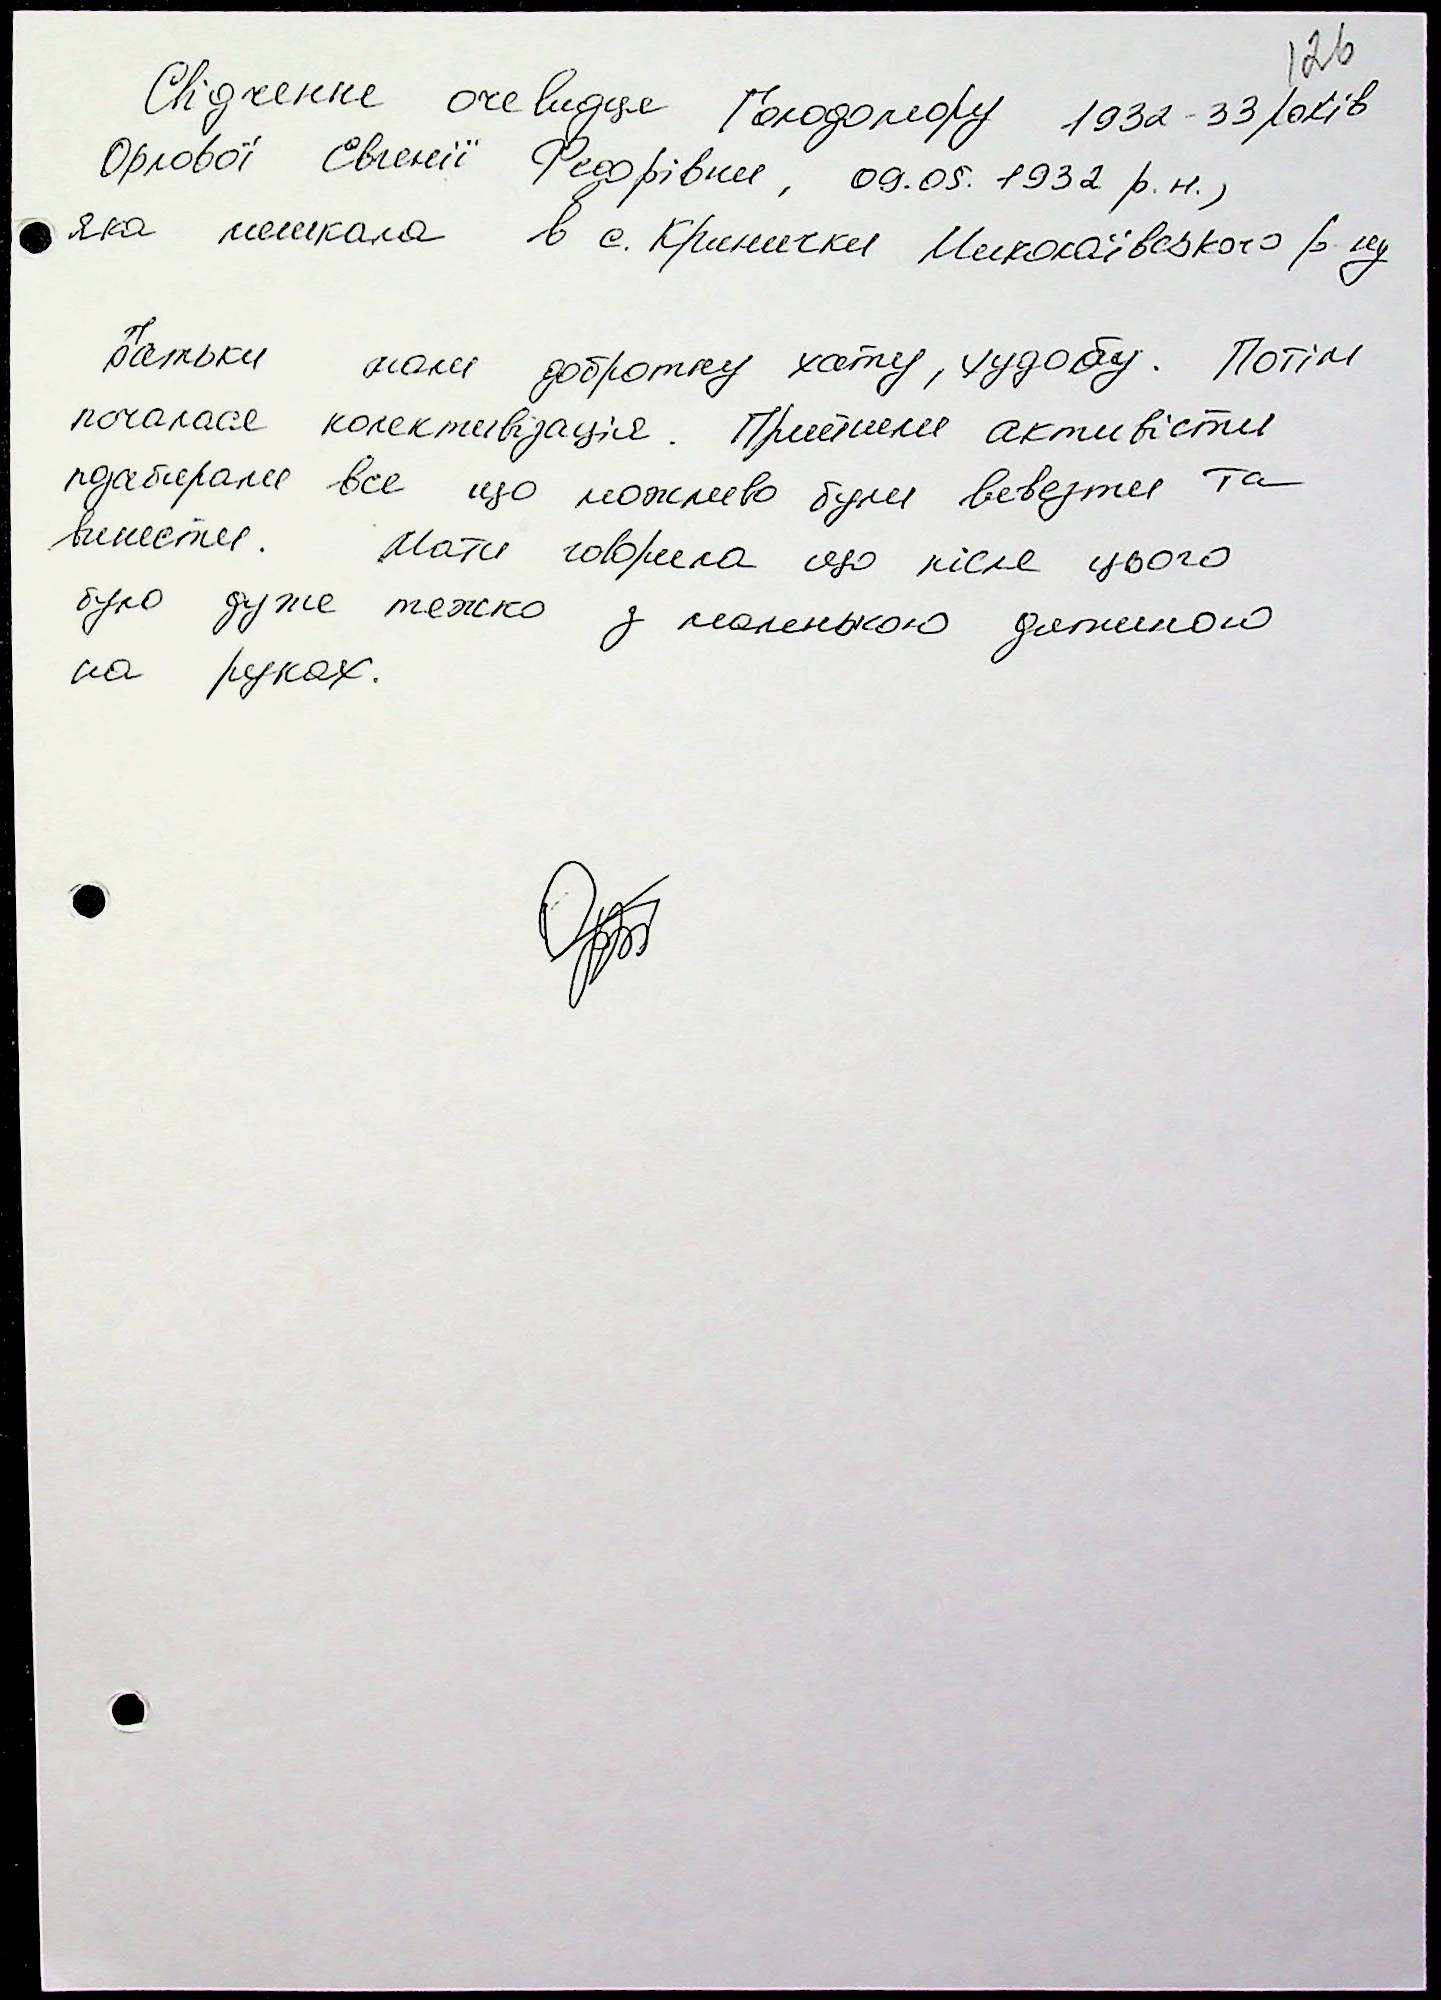 126
Свідчення очевидця Голодомору 1932-33 років
Орлової Євгенії Федорівни, 09.05.1932 р.н.,
яка мешкала в с. Кринички Миколаївського р-ну
Батьки мали добротну хату, худобу. Потім
почалася колективізація. Прийшли активісти
забирали все що можливо були вевезти та
винести. Мати говорила що після цього
було дуже тяжко з маленькою дитиною
на руках.